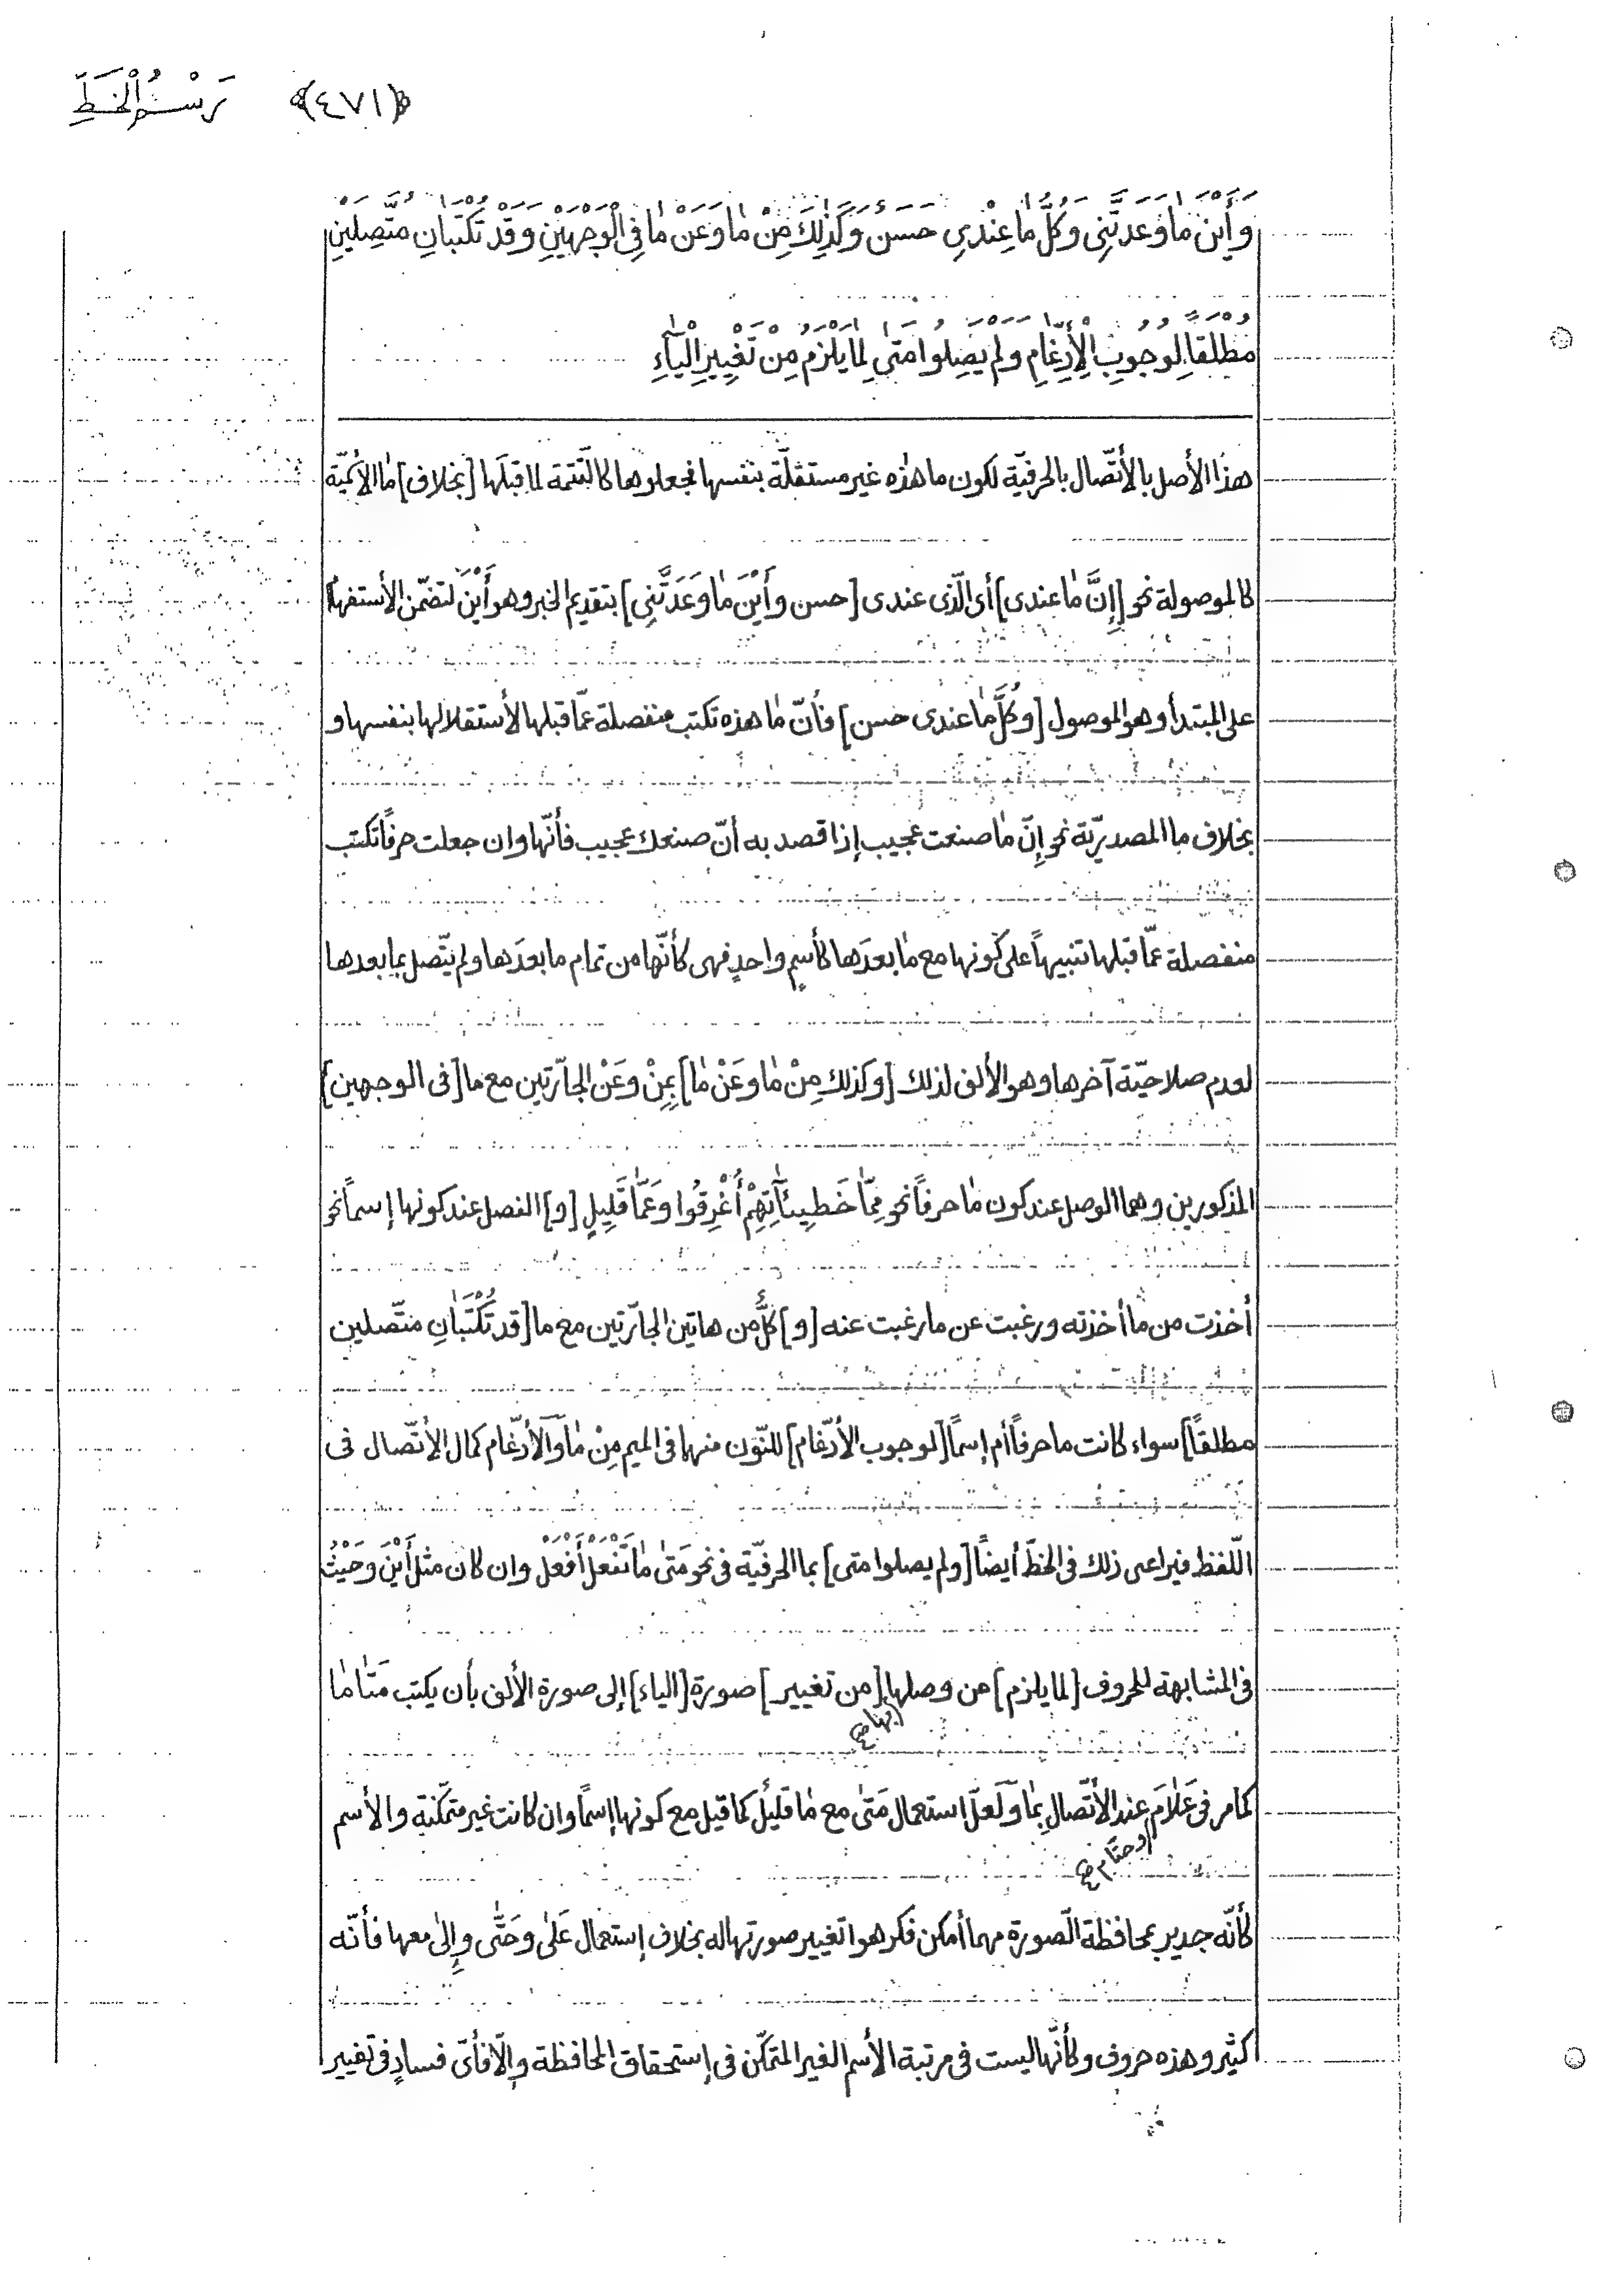 ﴿٤٧١﴾ رَسْمُ الْخَطِّ
وَأَيْنَ مٰا وَعَدَتَّنِى وَكُلُّ مٰا عِنْدِى حَسَنٌ وَكَذٰلِكَ مِنْ مٰا وَعَنْ مٰا فِى الْوَجْهَيْنِ وَقَدْ تُكْتَبٰانِ مُتَّصِلَيْنِ
مُطْلَقًا لِوُجُوبِ الْأِدِّغٰامِ وَلَمْ يَصِلُوا مَتىٰ لِمٰا يَلْزَمُ مِنْ تَغْيِيرِ الْيٰاءِ
هذا الأصل بالأتّصال بالحرفيّة لكون ما هذه غير مستقلّة بنفسها فجعلوها كالتّتمة لما قبلَها [بخلاف] مٰا الأسميّة
كالموصولة نحو [إِنَّ مٰا عندى] أى الّذى عندى [حسن وأَيْنَ مٰا وَعَدَتَّنِى] بتقديم الخبر وهو أَيْنَ لتضمّن الأستفهام
على المبتدأ وهو الموصول [وكُلُّ مٰا عندى حسن] فأنّ مٰا هذه تكتب منفصلة عمّا قبلها لأستقلالها بنفسها و
بخلاف ما المصدريّة نحو إِنّ مٰا صنعت عجيب إذا قصد به أنّ صنعك عجيب فأنّها وان جعلت حرفًا تكتب
منفصلة عمّا قبلها تنبيهاً على كونها مع مٰا بعدَها كأسمٍ واحدٍ فهى كأنّها من تمام ما بعدَها ولم يتّصل بما بعدها
لعدم صلاحيّة آخرها وهو الألف لذلك [وكذلك مِنْ مٰا وعَنْ مٰا] بِمِنْ وعَنْ الجارّتين مع ما [فى الوجهين]
المذكورين وهما الوصل عند كون مٰا حرفاً نحو مِمّٰا خَطِيئٰآتِهِمْ أُغْرِقُوا وَعَمّٰا قَلِيلٍ [و] الفصل عند كونها إسماً نحو
أخذت من ما أخذته ورغبت عن ما رغبت عنه [و] كلٌّ من هاتين الجارّتين مع ما [قد تُكْتَبٰانِ متّصلين
مطلقاً] سواء كانت ما حرفاً أم إسماً [لوجوب الأدّغام] للنّون منهما فى الميم مِنْ مٰا وَالأدّغام كمال الأتّصال فى
اللّفظ فيراعى ذلك فى الخطّ أيضاً [ولم يصلوا متى] بما الحرفيّة فى نحو مَتىٰ مٰا تَفْعَلْ أَفْعَلْ وان كان مثل أَيْنَ وحَيْثُ
فى المشابهة للحروف [لما يلزم] من وصلها [من تغيير] صورة [الياء] إلى صورة الألف بأن يكتب مَتٰامٰا
(بها خ)
كما مر فى عَلٰامَ عند الأتّصالِ بِمٰا وَلَعلّ استعمال مَتىٰ مع مٰا قليلٌ كما قيل مع كونها إسمًا وان كانت غير متمكّنة والأسم
(وحتّام خ)
كأنّه جدير بمحافظة الصّورة مهما أمكن فكرهوا تغيير صورتها له بخلاف إستعمال عَلىٰ وحَتّٰى وإِلىٰ معها فأنّه
كثير وهذه حروف وكأنّها ليست فى مرتبة الأسم الغير المتمكّن فى إستحقاق المحافظة وإلّا فأىّ فسادٍ فى تغيير